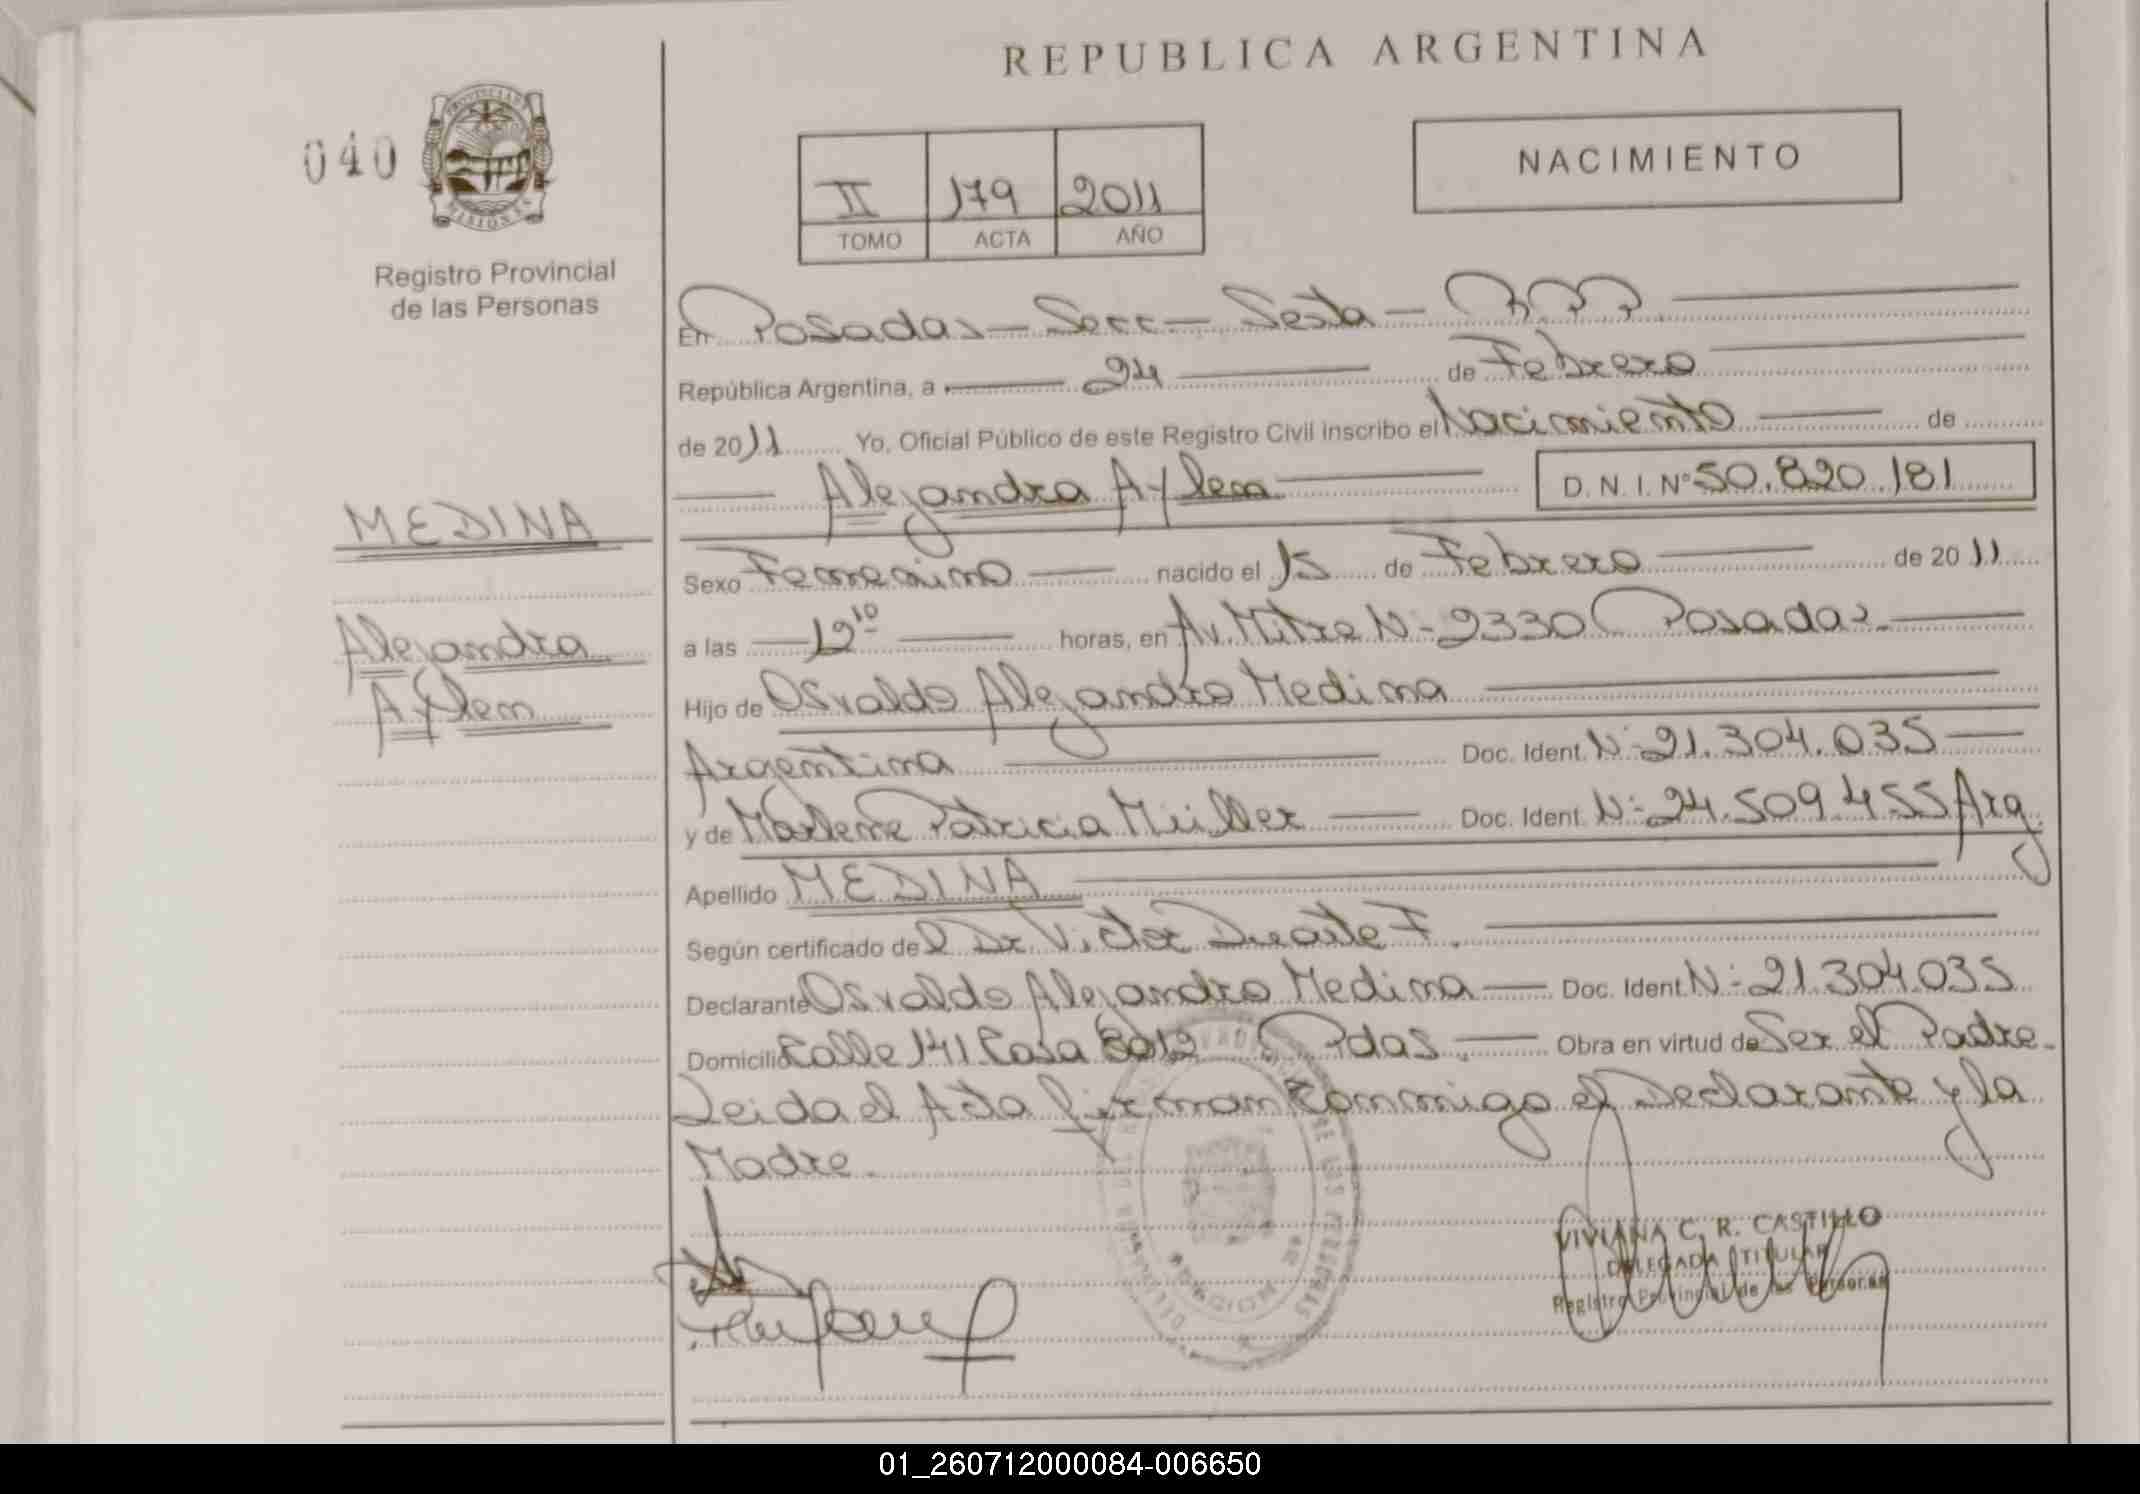 REPUBLICA ARGENTINA
040
PROVINCIA DE MISIONES
Registro Provincial
de las Personas
II 179 2011
TOMO ACTA AÑO
NACIMIENTO
En Posadas — Secc — Sexta — R.P.P.
República Argentina, a 24 de Febrero
de 2011 Yo, Oficial Público de este Registro Civil inscribo el Nacimiento de
Alejandra Aylen D.N.I. Nº 50.820.181
MEDINA
Alejandra
Aylen
Sexo Femenino nacido el 15 de Febrero de 2011
a las 12 10 horas, en Av. Mitre N- 2330 Posadas
Hijo de Osvaldo Alejandro Medina
Argentina Doc. Ident. N- 21.304.035
y de Marlene Patricia Müller Doc. Ident. N- 24.509.455 Arg.
Apellido MEDINA
Según certificado del Dr. Victor Duarte F.
Declarante Osvaldo Alejandro Medina Doc. Ident. N- 21.304.035
Domicilio Calle 141 Casa Pdas. Obra en virtud de Ser el Padre.
Leida el Acta firman conmigo el Declarante y la
Madre.
VIVIANA C. R. CASTILLO
DELEGADA TITULAR
Registro Provincial de las Personas
01_260712000084-006650